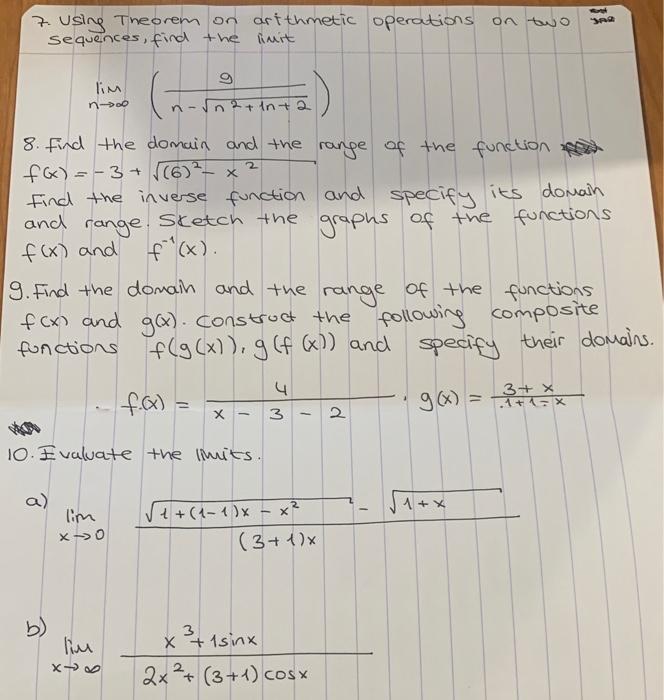 7. Using Theorem on arithmetic operations on two
sequences, find the limit
lim n→∞ ( 9 / (n - √(n² + 1n + 2)) )
8. Find the domain and the range of the function
f(x) = -3 + √((6)² - x²)
Find the inverse function and specify its domain
and range. Sketch the graphs of the functions
f(x) and f⁻¹(x).
9. Find the domain and the range of the functions
f(x) and g(x). Construct the following composite
functions f(g(x)), g(f(x)) and specify their domains.
f(x) = 4 / (x - 3 - 2) , g(x) = (3 + x) / (1 + 1 - x)
10. Evaluate the limits.
a) lim x→0 (√(1 + (1-1)x - x²) - √(1 + x)) / ((3+1)x)
b) lim x→∞ (x³ + 1sinx) / (2x² + (3+1)cosx)